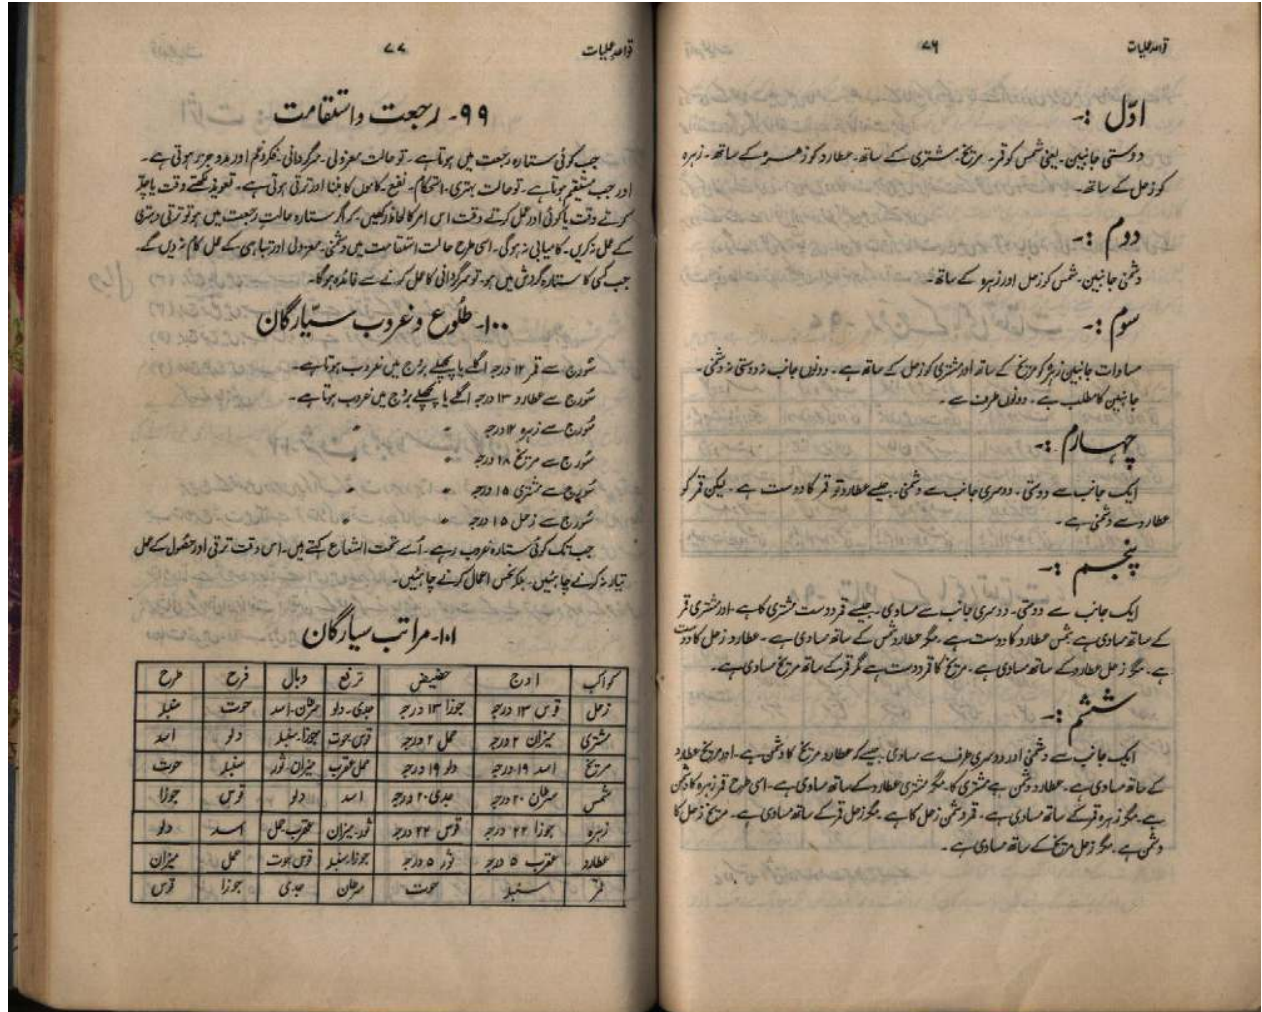 قواعد عملیات
۷۶
اوّل :-
دوستی جانبین۔ یعنی شمس کو قمر۔ مریخ مشتری کے ساتھ۔ عطارد کو زہرہ کے ساتھ۔ زہرہ
کو زحل کے ساتھ۔
دوم :-
دشمنی جانبین۔ شمس کو زحل اور زہرہ کے ساتھ۔
سوم :-
مساوات جانبین زہرہ کو مریخ کے ساتھ اور مشتری کو زحل کے ساتھ ہے۔ دونوں جانب نہ دوستی نہ دشمنی۔
جانبین کا مطلب ہے۔ دونوں طرف سے۔
چہارم :-
ایک جانب سے دوستی۔ دوسری جانب سے دشمنی۔ جیسے عطارد تو قمر کا دوست ہے۔ لیکن قمر کو
عطارد سے دشمنی ہے۔
پنجم :-
ایک جانب سے دوستی۔ دوسری جانب سے مساوی۔ جیسے قمر دوست مشتری کا ہے۔ اور مشتری قمر
کے ساتھ مساوی ہے۔ شمس عطارد کا دوست ہے۔ مگر عطارد شمس کے ساتھ مساوی ہے۔ عطارد زحل کا دوست
ہے۔ مگر زحل عطارد کے ساتھ مساوی ہے۔ مریخ کا قمر دوست ہے مگر قمر کے ساتھ مریخ مساوی ہے۔
ششم :-
ایک جانب سے دشمنی اور دوسری طرف سے مساوی۔ جیسے کہ عطارد مریخ کا دشمن ہے۔ اور مریخ عطارد
کے ساتھ مساوی ہے۔ عطارد دشمن ہے مشتری کا۔ مگر مشتری عطارد کے ساتھ مساوی ہے۔ اسی طرح قمر زہرہ کا دشمن
ہے۔ مگر زہرہ قمر کے ساتھ مساوی ہے۔ قمر دشمن زحل کا ہے۔ مگر زحل قمر کے ساتھ مساوی ہے۔ مریخ زحل کا
دشمن ہے۔ مگر زحل مریخ کے ساتھ مساوی ہے۔
قواعد عملیات
۷۷
۹۹- رجعت و استقامت
جب کوئی ستارہ رجعت میں ہوتا ہے۔ تو حالت معزولی۔ سرگردانی۔ فکر و غم اور مدوجزر ہوتی ہے۔
اور جب مستقیم ہوتا ہے۔ تو حالت بہتری۔ استحکام۔ نفع۔ کاموں کا بننا اور ترقی ہوتی ہے۔ تعویذ لکھتے وقت یا چلّہ
کرتے وقت یا کوئی اور عمل کرتے وقت اس امر کا لحاظ رکھیں۔ کہ اگر ستارہ حالت رجعت میں ہو تو ترقی و بہتری
کے عمل نہ کریں۔ کامیابی نہ ہوگی۔ اسی طرح حالت استقامت میں دشمنی۔ معزولی اور تباہی کے عمل کام نہ دیں گے۔
جب کسی کا ستارہ گردش میں ہو۔ تو سرگردانی کا عمل کرنے سے فائدہ ہوگا۔
۱۰۰- طلُوع و غروب سیّارگان
سُورج سے قمر ۱۲ درجہ اگلے یا پچھلے بُرج میں غروب ہوتا ہے۔
سُورج سے عطارد ۱۳ درجہ اگلے یا پچھلے بُرج میں غروب ہوتا ہے۔
سُورج سے زہرہ ۱۲ درجہ " "
سُورج سے مریخ ۱۸ درجہ " "
سُورج سے مشتری ۱۵ درجہ " "
سُورج سے زحل ۱۵ درجہ " "
جب تک کوئی ستارہ غروب رہے۔ اُسے تحت الشعاع کہتے ہیں۔ اس وقت ترقی اور حصُول کے عمل
تیار نہ کرنے چاہئیں۔ بلکہ نحس اعمال کرنے چاہئیں۔
۱۰۱- مراتب سیارگان
کواکب اوج حضیض ترفع وبال فرح طرح
زحل قوس ۱۳ درجہ جوزا ۱۳ درجہ جدی۔دلو سرطان۔اسد حوت سنبلہ
مشتری میزان ۲ درجہ حمل ۲ درجہ قوس۔حوت جوزا۔سنبلہ دلو اسد
مریخ اسد ۱۹ درجہ دلو ۱۹ درجہ حمل عقرب میزان۔ثور سنبلہ حوت
شمس سرطان ۲۰ درجہ جدی ۲۰ درجہ اسد دلو قوس جوزا
زہرہ جوزا ۲۲ درجہ قوس ۲۲ درجہ ثور۔میزان عقرب۔حمل اسد دلو
عطارد عقرب ۵ درجہ ثور ۵ درجہ جوزا۔سنبلہ قوس حوت حمل میزان
قمر سنبلہ حوت سرطان جدی جوزا قوس